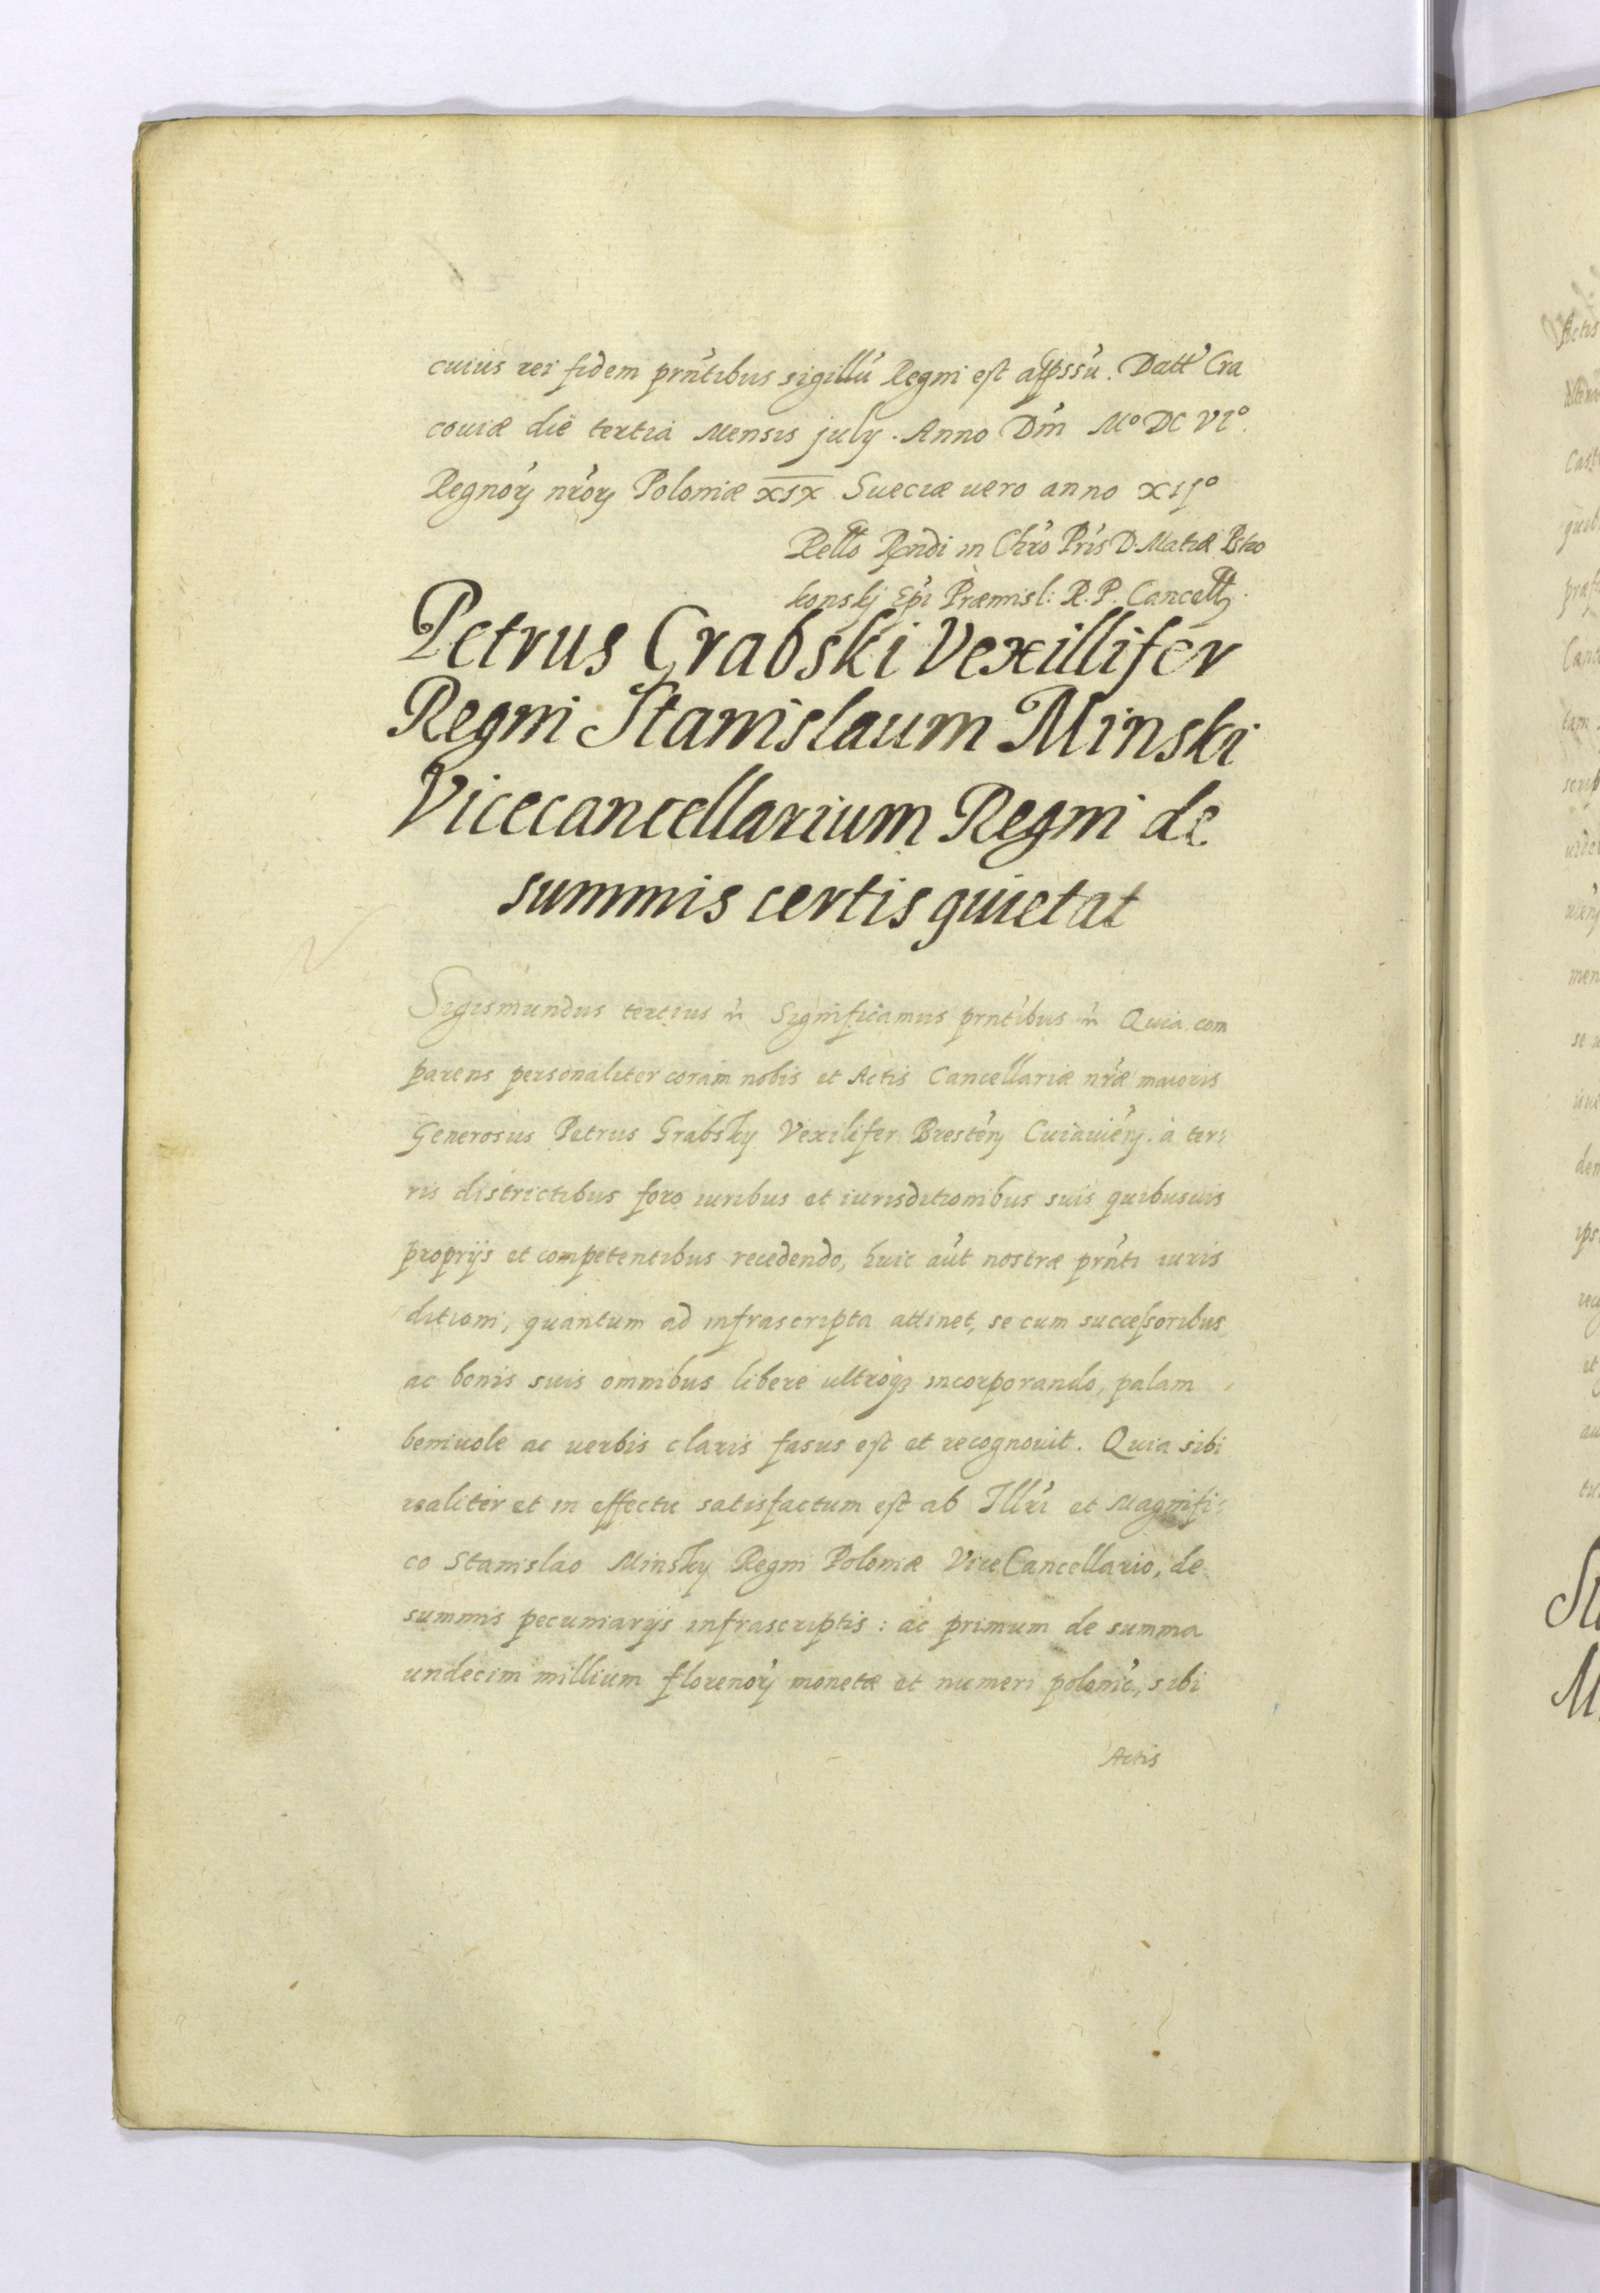 cuius rei fidem prn̄tibus sigillū Regni est appssū. Datt Cra
coviæ die tertia Mensis july. Anno Dm̄ M° DC VI°.
Regnorȝ nrōrȝ Poloniæ XIX Sueciæ vero anno XII°
Retto Rndi in Chrō Pris D. Matiæ Psko
konskj Epī Præmisl: R. P. Cancett
Petrus Grabski Vexillifer
Regni Stanislaum Minski
Vicecancellarium Regni de
summis certis quietat
Sigismundus tertius Significamus prntibus Quia com
parens personaliter coram nobis et Actis Cancellariæ nr̄æ maioris
Generosus Petrus Grabsky Vexilifer Bresten̄ Cuiavien̄. à ter:
ris districtibus foro iuribus et iurisditionibus suis quibusuis
proprijs et competentibus recedendo, huic aūt nostræ prn̄ti iuris
ditioni, quantum ad infrascripta attinet, se cum successoribus
ac bonis suis omnibus libere ultroq3 incorporando, palam
beniuole ac uerbis claris fasus est et recognouit. Quia sibi
realiter et in effectu satisfactum est ab Illrī et Magnifi:
co Stanislao Minsky Regni Poloniæ ViceCancellario, de
summis pecuniarijs infrascriptis: ac primum de summa
undecim millium florenorȝ monetæ et numeri polonic̄, sibi
Actis